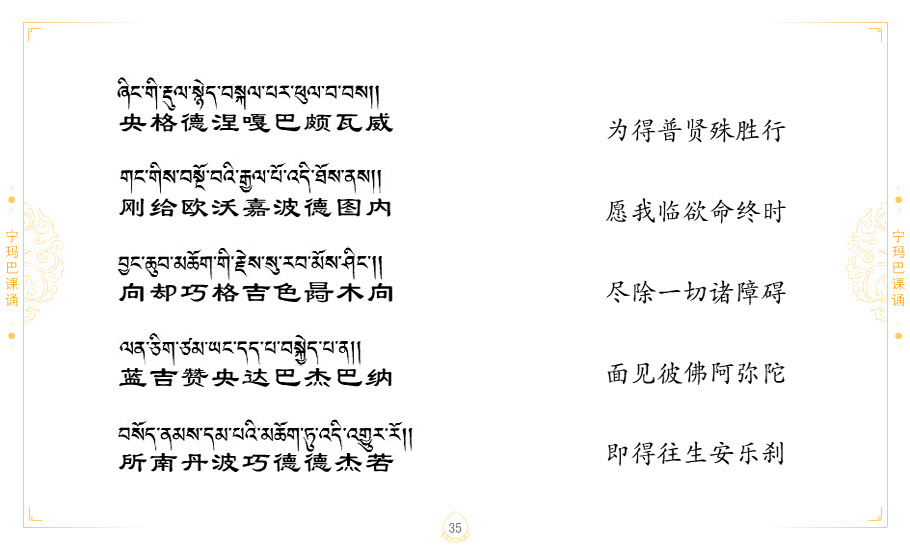 ཞིང་གི་རྡུལ་སྙེད་བསྐལ་པར་ཕུལ་བ་བས།།
央格德涅嘎巴颇瓦威
གང་གིས་བསྔོ་བའི་རྒྱལ་པོ་འདི་ཐོས་ནས།།
刚给欧沃嘉波德图内
བྱང་ཆུབ་མཆོག་གི་རྗེས་སུ་རབ་མོས་ཤིང་།།
向却巧格吉色冔木向
ལན་ཅིག་ཙམ་ཡང་དད་པ་བསྐྱེད་པ་ན།།
蓝吉赞央达巴杰巴纳
བསོད་ནམས་དམ་པའི་མཆོག་ཏུ་འདི་འགྱུར་རོ།།
所南丹波巧德德杰若
为得普贤殊胜行
愿我临欲命终时
尽除一切诸障碍
面见彼佛阿弥陀
即得往生安乐刹
宁玛巴课诵
宁玛巴课诵
35